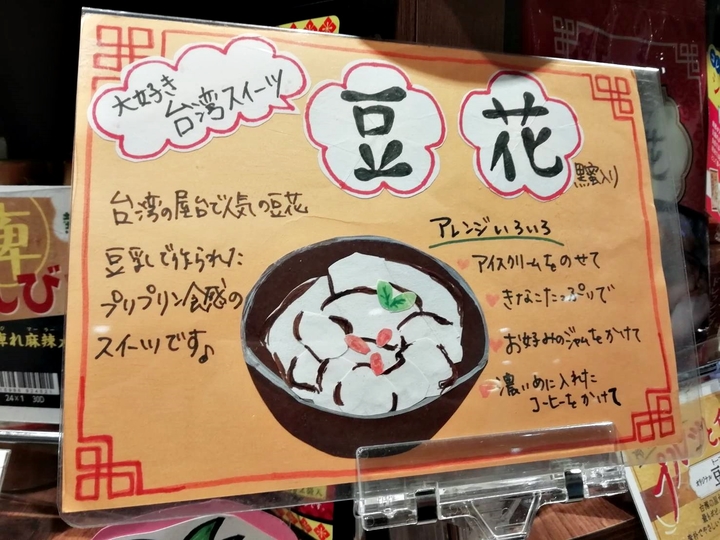 大好き
台湾スイーツ
豆花
黒蜜入り
台湾の屋台で人気の豆花
豆乳で作られた
プリプリン食感の
スイーツです♪
アレンジいろいろ
アイスクリームをのせて
きなこたっぷりで
お好みのジャムをかけて
濃いめに入れた
コーヒーをかけて
れ麻辣
24×1 30D